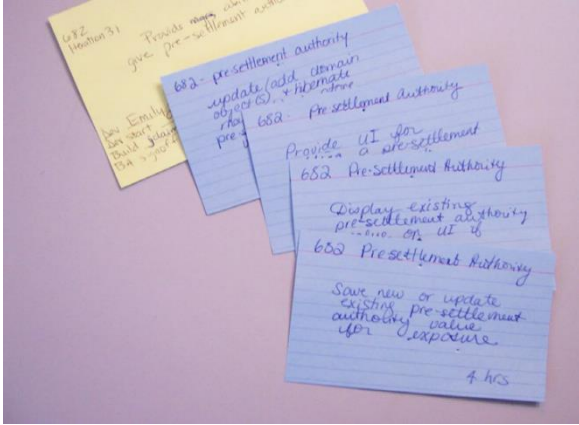 682
Iteration 31
Provide
give pre-settlement
Dev Emily
Dev start
Build
BA
682- pre-settlement authority
update/add domain
object(s) + hibernate
pre-
682- Pre settlement Authority
Provide UI for
a pre-settlement
682 Pre-Settlement Authority
Display existing
pre-settlement authority
on UI if
682 Presettlement Authority
Save new or update
existing pre-settlement
authority value
for exposure
4 hrs